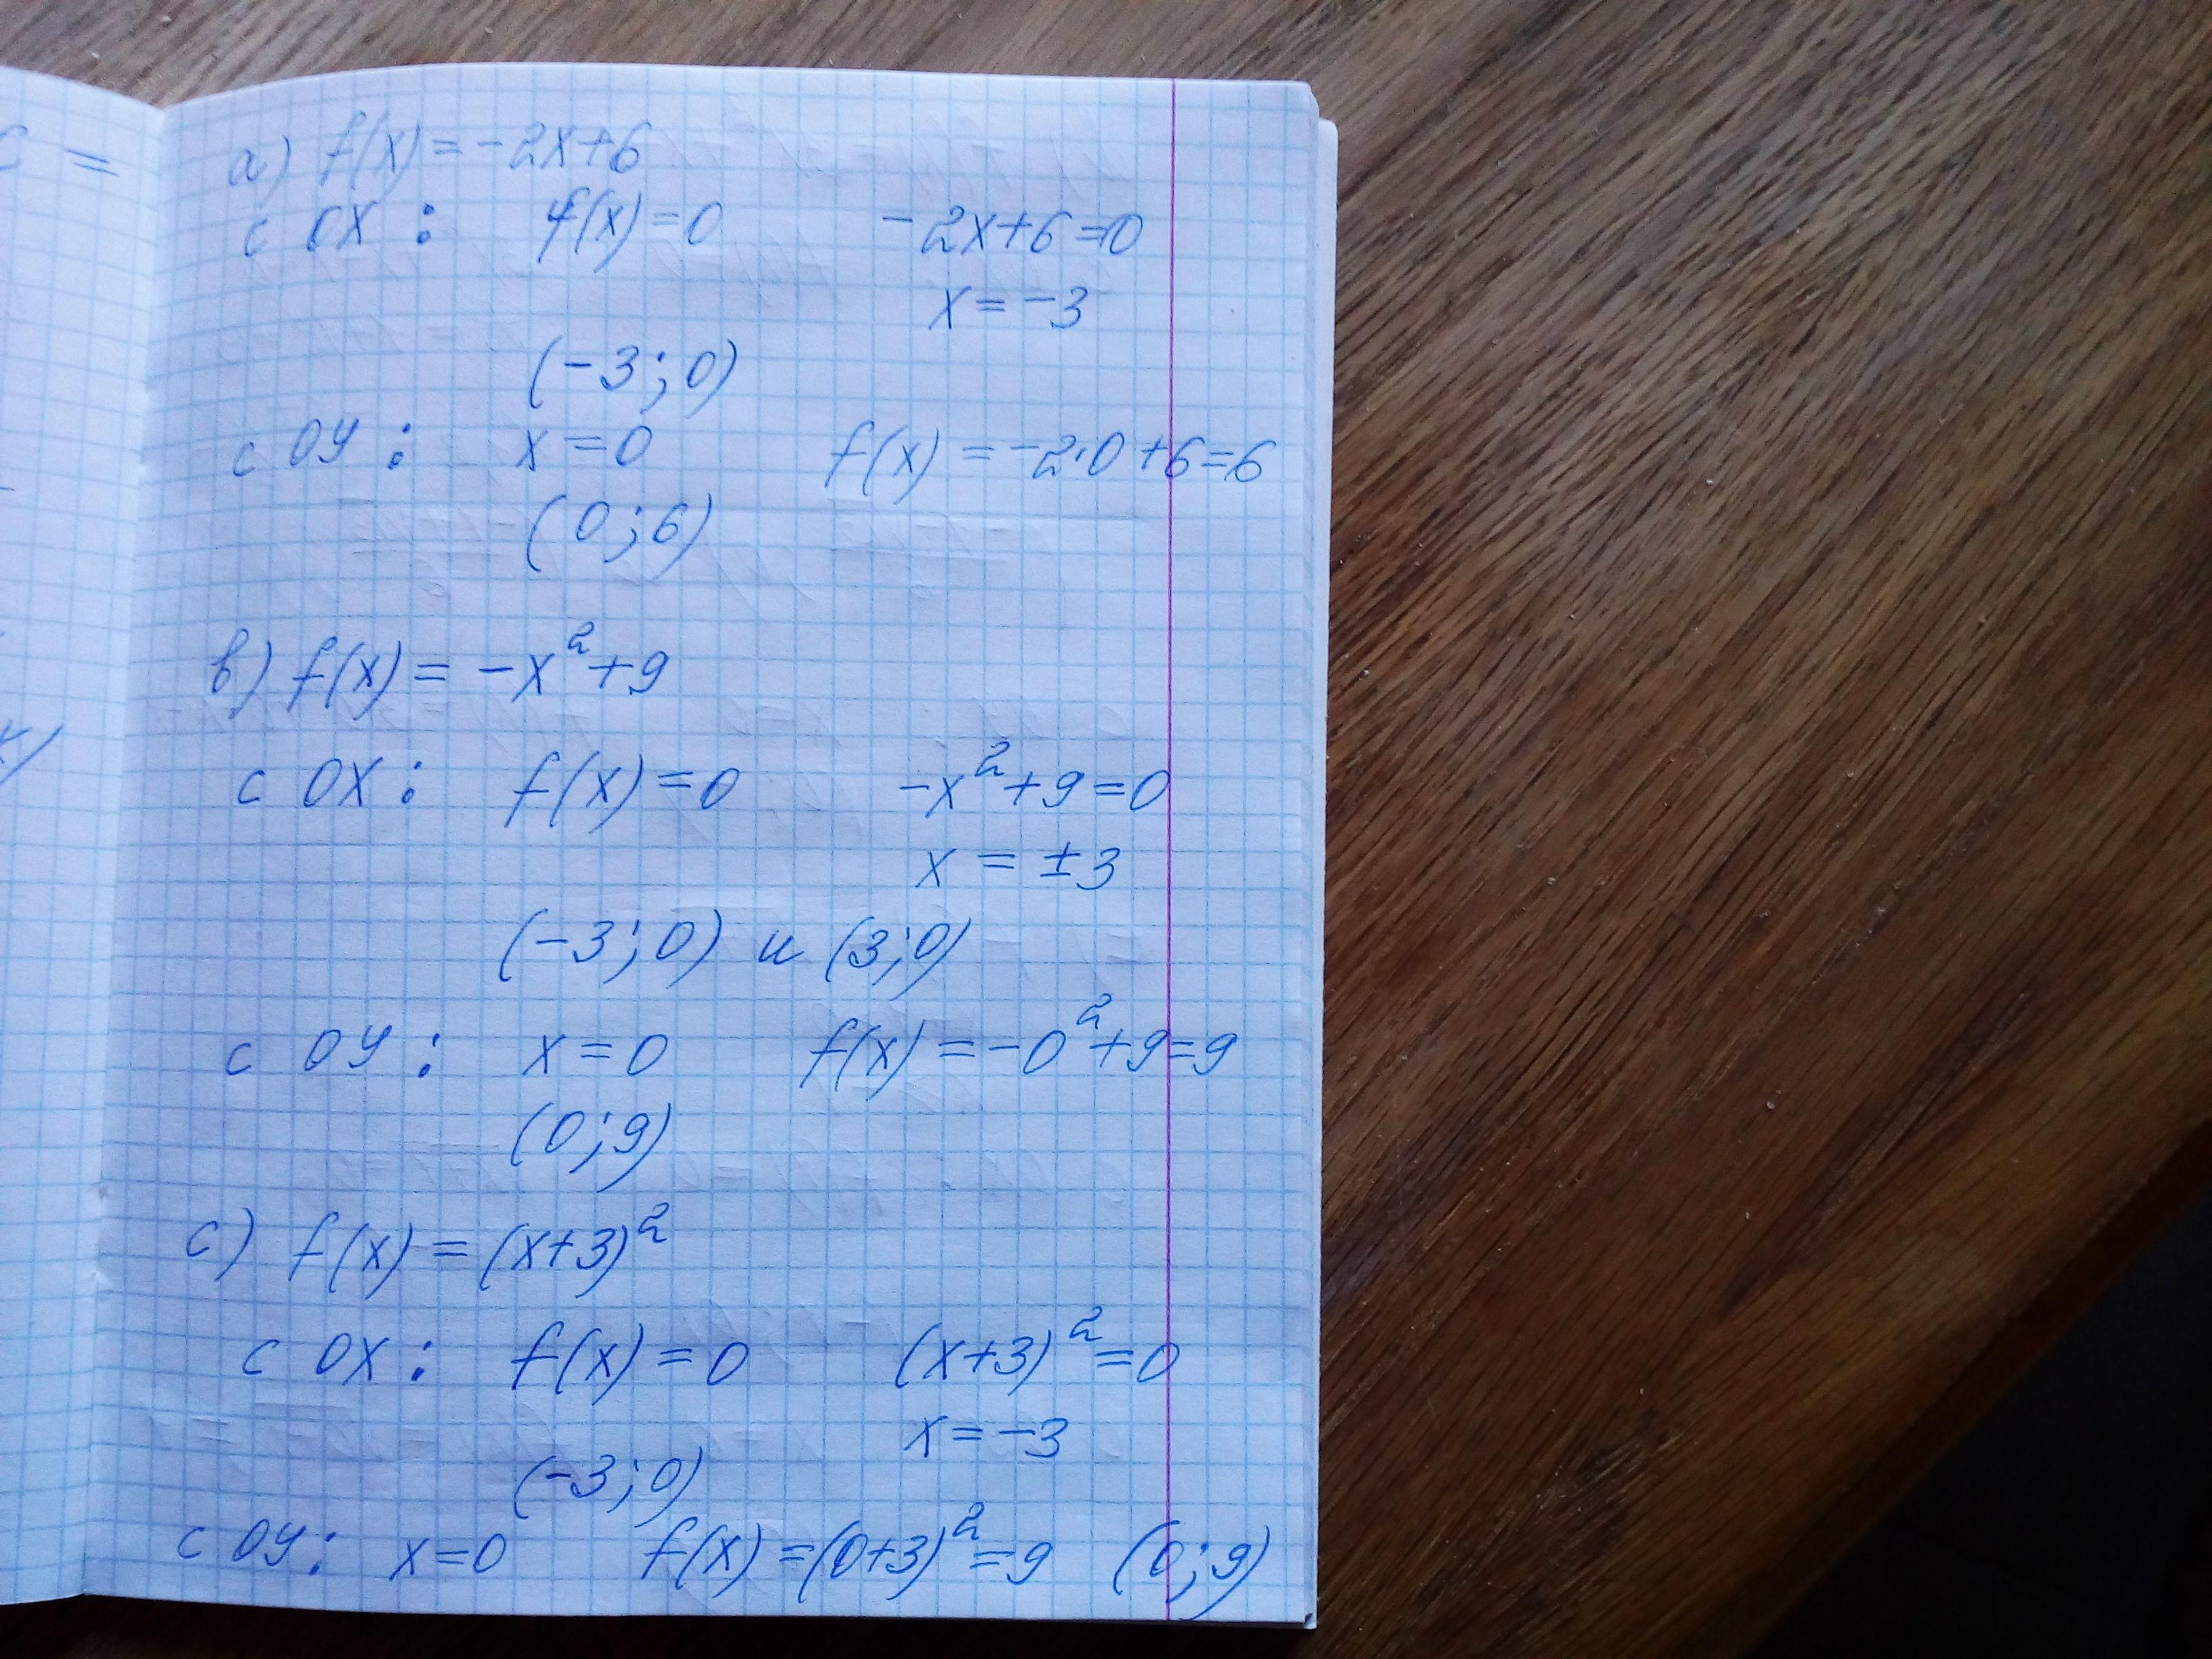 c =
a) f(x) = -2x+6
с OX : f(x) = 0 -2x+6=0
x = -3
(-3;0)
с OY : x = 0 f(x) = -2·0+6=6
(0;6)
b) f(x) = -x²+9
с OX : f(x) = 0 -x²+9=0
x = ±3
(-3;0) и (3;0)
с OY : x = 0 f(x) = -0²+9=9
(0;9)
c) f(x) = (x+3)²
с OX : f(x) = 0 (x+3)²=0
x = -3
(-3;0)
с OY : x=0 f(x) = (0+3)²=9 (0;9)